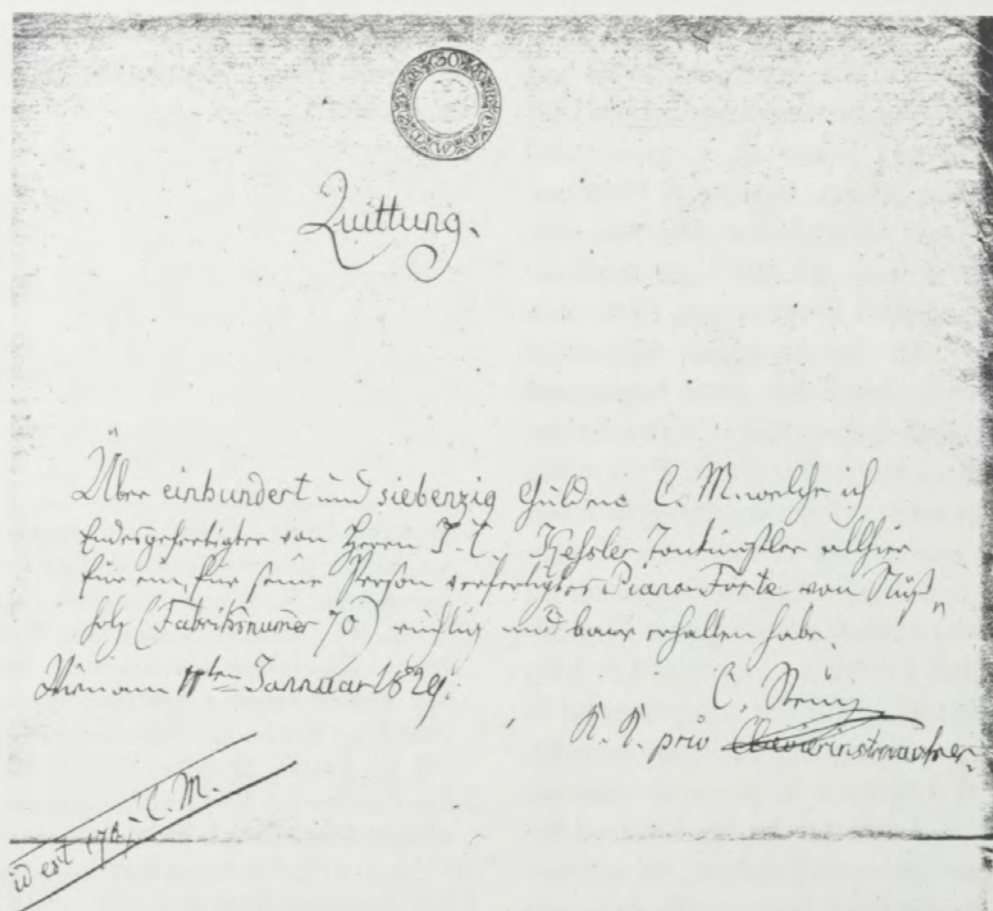 30
Quittung.
Über einhundert und siebenzig Gulden C. M. welche ich
Endesgefertigter von Herrn J. C. Keßler Tonkünstler allhier
für ein, für seine Person verfertigtes Piano-Forte von Nuß„
holz (Fabriksnum̅er 70) richtig und baar erhalten habe.
Wien am 11ten Jannuar 1829.
C. Stein
K. K. priv Clavierinstrmacher.
id est 170 C. M.